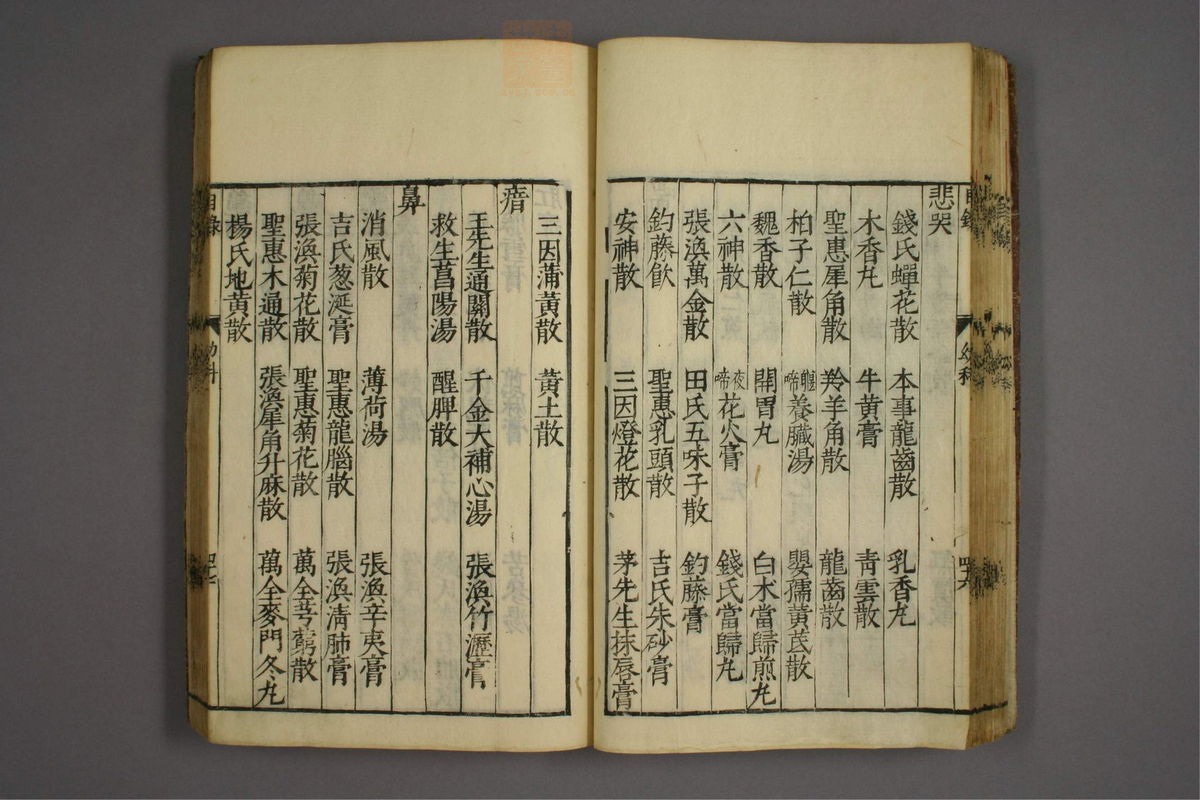 目錄 幼科 四六
悲哭
錢氏蟬花散 本事龍齒散 乳香丸
木香丸 牛黃膏 靑雲散
聖惠犀角散 羚羊角散 龍齒散
柏子仁散 軀啼養臟湯 嬰孺黃芪散
魏香散 開胃丸 白术當歸煎丸
六神散 夜啼花火膏 錢氏當歸丸
張渙萬金散 田氏五味子散 釣藤膏
釣藤飮 聖惠乳頭散 吉氏朱砂膏
安神散 三因燈花散 茅先生抹唇膏
三因蒲黃散 黃土散
瘖
王先生通關散 千金大補心湯 張渙竹瀝膏
救生菖陽湯 醒脾散
鼻
消風散 薄荷湯 張渙辛夷膏
吉氏葱涎膏 聖惠龍腦散 張渙淸肺膏
張渙菊花散 聖惠菊花散 萬全芎藭散
聖惠木通散 張渙犀角升麻散 萬全麥門冬丸
楊氏地黃散
目錄 幼科 四七